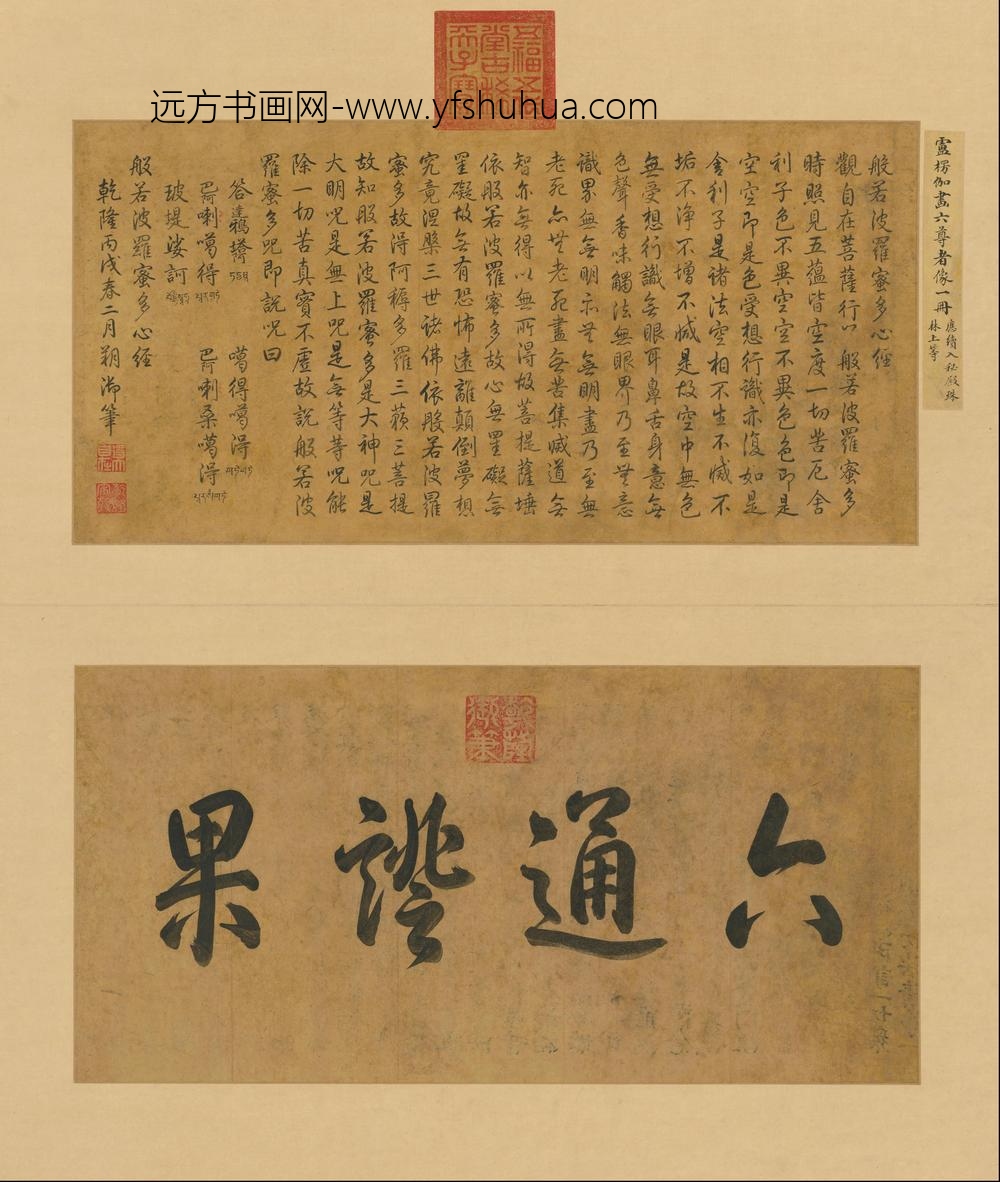 远方书画网-www.yfshuhua.com
盧楞伽畫六尊者像一冊
應續入秘殿珠
林上等
般若波羅蜜多心經
觀自在菩薩行以般若波羅蜜多
時照見五蘊皆空度一切苦厄舍
利子色不異空空不異色色即是
空空即是色受想行識亦復如是
舍利子是諸法空相不生不滅不
垢不淨不增不減是故空中無色
無受想行識無眼耳鼻舌身意無
色聲香味觸法無眼界乃至無意
識界無無明亦無無明盡乃至無
老死亦無老死盡無苦集滅道無
智亦無得以無所得故菩提薩埵
依般若波羅蜜多故心無罣礙無
罣礙故無有恐怖遠離顛倒夢想
究竟涅槃三世諸佛依般若波羅
蜜多故得阿耨多羅三藐三菩提
故知般若波羅蜜多是大神咒是
大明咒是無上咒是無等等咒能
除一切苦真實不虛故說般若波
羅蜜多咒即說咒曰
噶得噶得
巴喇噶得 巴喇桑噶得
玻提娑訶
般若波羅蜜多心經
乾隆丙戌春二月朔御筆
乾隆御筆
六通證果